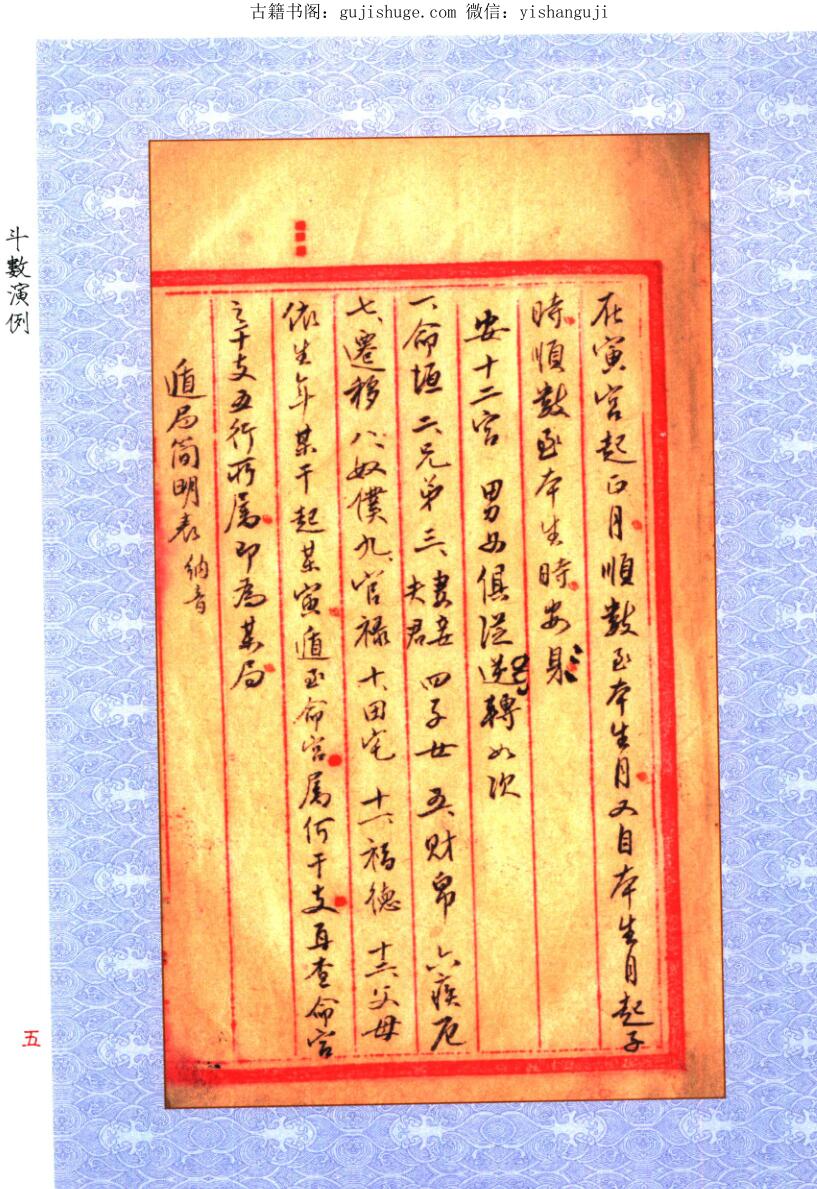 古籍书阁：gujishuge.com 微信：yishanguji
在寅宫起正月順數至本生月又自本生月起子
時順數至本生時安身
安十二宫 男女俱從逆轉如次
一、命垣 二、兄弟 三、妻妾夫君 四子女 五、财帛 六疾厄
七、遷移 八、奴僕 九、官禄 十、田宅 十一、福德 十二、父母
依生年某干起某寅遁至命宫属何干支再查命宫
之干支五行所属即為某局
遁局简明表 纳音
斗數演例
五